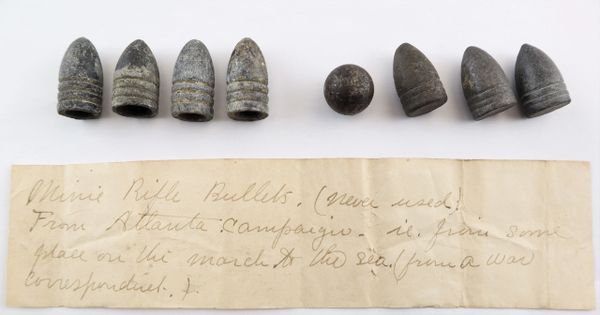 Minie Rifle Bullets. (never used!
From Attanta campaign - ie. from some
place on the march to the sea. (from a war
correspondent.).